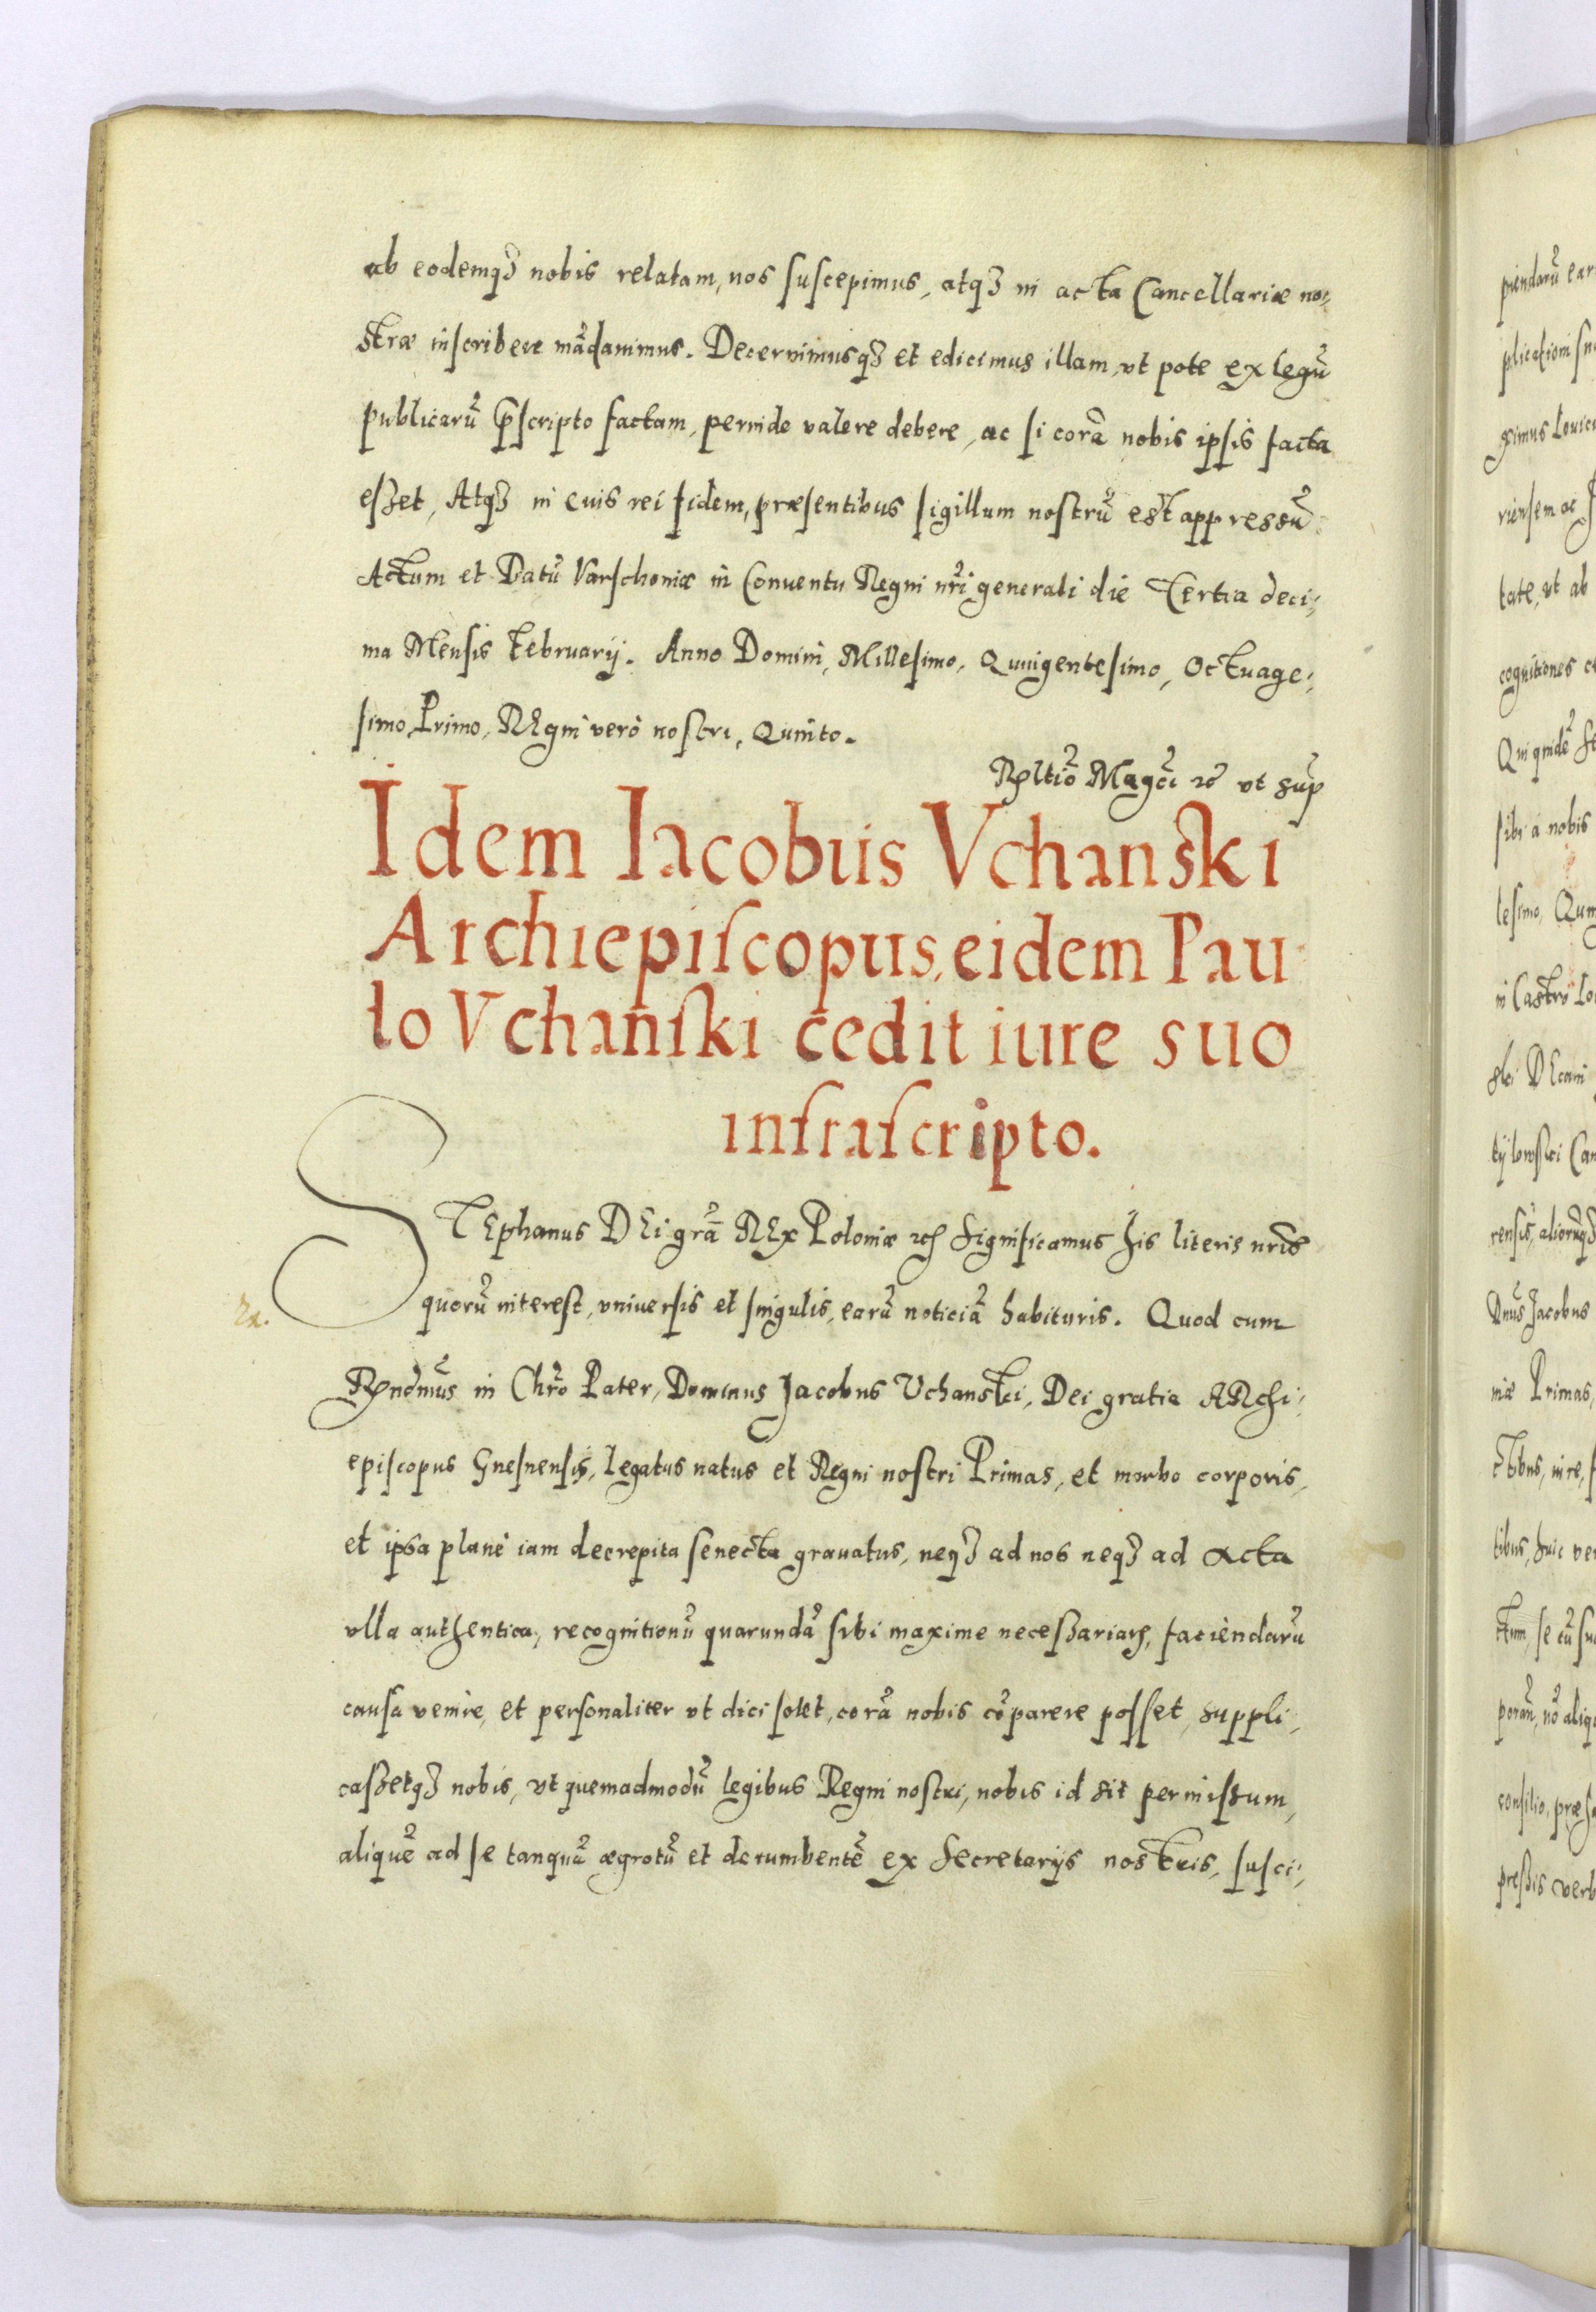 ab eodemq₃ nobis relatam, nos suscepimus, atq₃ in acta Cancellariæ no,
stræ inscribere mãdauimus. Decernimusq₃ et edicimus illam, vt pote ex legũ
publicarũ p̄scripto factam, perinde valere debere, ac si corã nobis ipsis facta
esset, Atq₃ in cuis rei fidem, præsentibus sigillum nostrũ est appressũ.
Actum et Datũ Varschouiæ in Conuentu Regni nr̃i generali die Tertia deci,
ma Mensis februarij. Anno Domini, Millesimo, Quingentesimo, Octuage,
simo, Primo, REgni verò nostri, Quinto.
Rltiõ Magci ꝛc̃ vt sup
Idem Iacobus Vchanski
Archiepiscopus, eidem Pau
lo Vchanski cedit iure suo
infrascripto.
STEphanus DEi grã REx Poloniæ ꝛc Significamus his literis nr̃is
quorũ interest, vniuersis et singulis, earũ noticiã habituris. Quod cum
Rndmũs in Chrõ Pater, Dominus Jacobus Vchanski, Dei gratia ARchi,
episcopus Gnesnensis, legatus natus et Regni nostri Primas, et morbo corporis,
et ipsa planè iam decrepita senecta grauatus, neq₃ ad nos neq₃ ad acta
vlla authentica, recognitionũ quarundã sibi maxime necessariarꝝ, faciendarũ
causa venire, et personaliter vt dici solet, corã nobis cõparere posset, suppli,
cassetq₃ nobis, vt quemadmodũ legibus Regni nostri, nobis id sit permissum,
aliquẽ ad se tanquã ægrotũ et decumbentẽ ex Secretarijs nostris, susci,
piendarũ ear
tate, vt ab
cognitiones
Quiquidẽ
sibi à nobis
tesimo, Quin
in Castro Lo
rensis, aliorũq₃
Dnũs Jacobus
niæ Primas,
consilio, præ
pressis verb